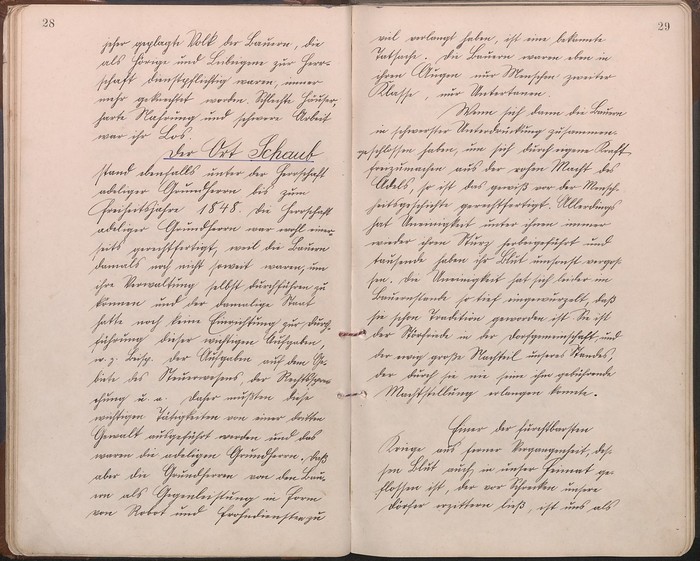 28
jeher geplagte Volk der Bauern, die
als Hörige und Leibeigene zur Herr-
schaft dienstpflichtig waren, immer
mehr geknechtet worden. Schlechte Häuser,
harte Nahrung und schwere Arbeit
war ihr Los.
Der Ort Schaub
stand ebenfalls unter der Herrschaft
adeliger Grundherrn bis zum
Freiheitsjahre 1848. Die Herrschaft
adeliger Grundherrn war wohl einer-
seits gerechtfertigt, weil die Bauern
damals noch nicht soweit waren, um
ihre Verwaltung selbst durchführen zu
können und der damalige Staat
hatte noch keine Einrichtung zur Durch-
führung dieser wichtigen Aufgaben,
w. z. Beisp. der Aufgaben auf dem Ge-
biete des Steuerwesens, der Rechtsspre-
chung u. a. Daher mußten diese
wichtigen Tätigkeiten von einer dritten
Gewalt ausgeführt werden und das
waren die adeligen Grundherrn. Daß
aber die Grundherrn von den Bau-
ern als Gegenleistung in Form
von Robot und Frohndiensten zu
29
viel verlangt haben, ist eine bekannte
Tatsache. Die Bauern waren eben in
ihren Augen nur Menschen zweiter
Klasse, nur Untertanen.
Wenn sich dann die Bauern
in schwerster Unterdrückung zusammen-
geschlossen haben, um sich durch eigene Kraft
freizumachen aus der rohen Macht des
Adels, so ist das gewiß vor der Mensch-
heitsgeschichte gerechtfertigt. Allerdings
hat Uneinigkeit unter ihnen immer
wieder ihren Sturz herbeigeführt und
tausende haben ihr Blut umsonst vergos-
sen. Die Uneinigkeit hat sich leider im
Bauernstande so tief eingewurzelt, daß
sie schon Tradition geworden ist. Sie ist
der Störefried in der Dorfgemeinschaft und
der ewig große Nachteil unseres Standes,
der durch sie nie seine ihm gebührende
Machtstellung erlangen konnte.
Einer der furchtbarsten
Kriege aus ferner Vergangenheit, des-
sen Blut auch in unser Heimat ge-
flossen ist, der vor Schrecken unsere
Dörfer erzittern ließ, ist uns als